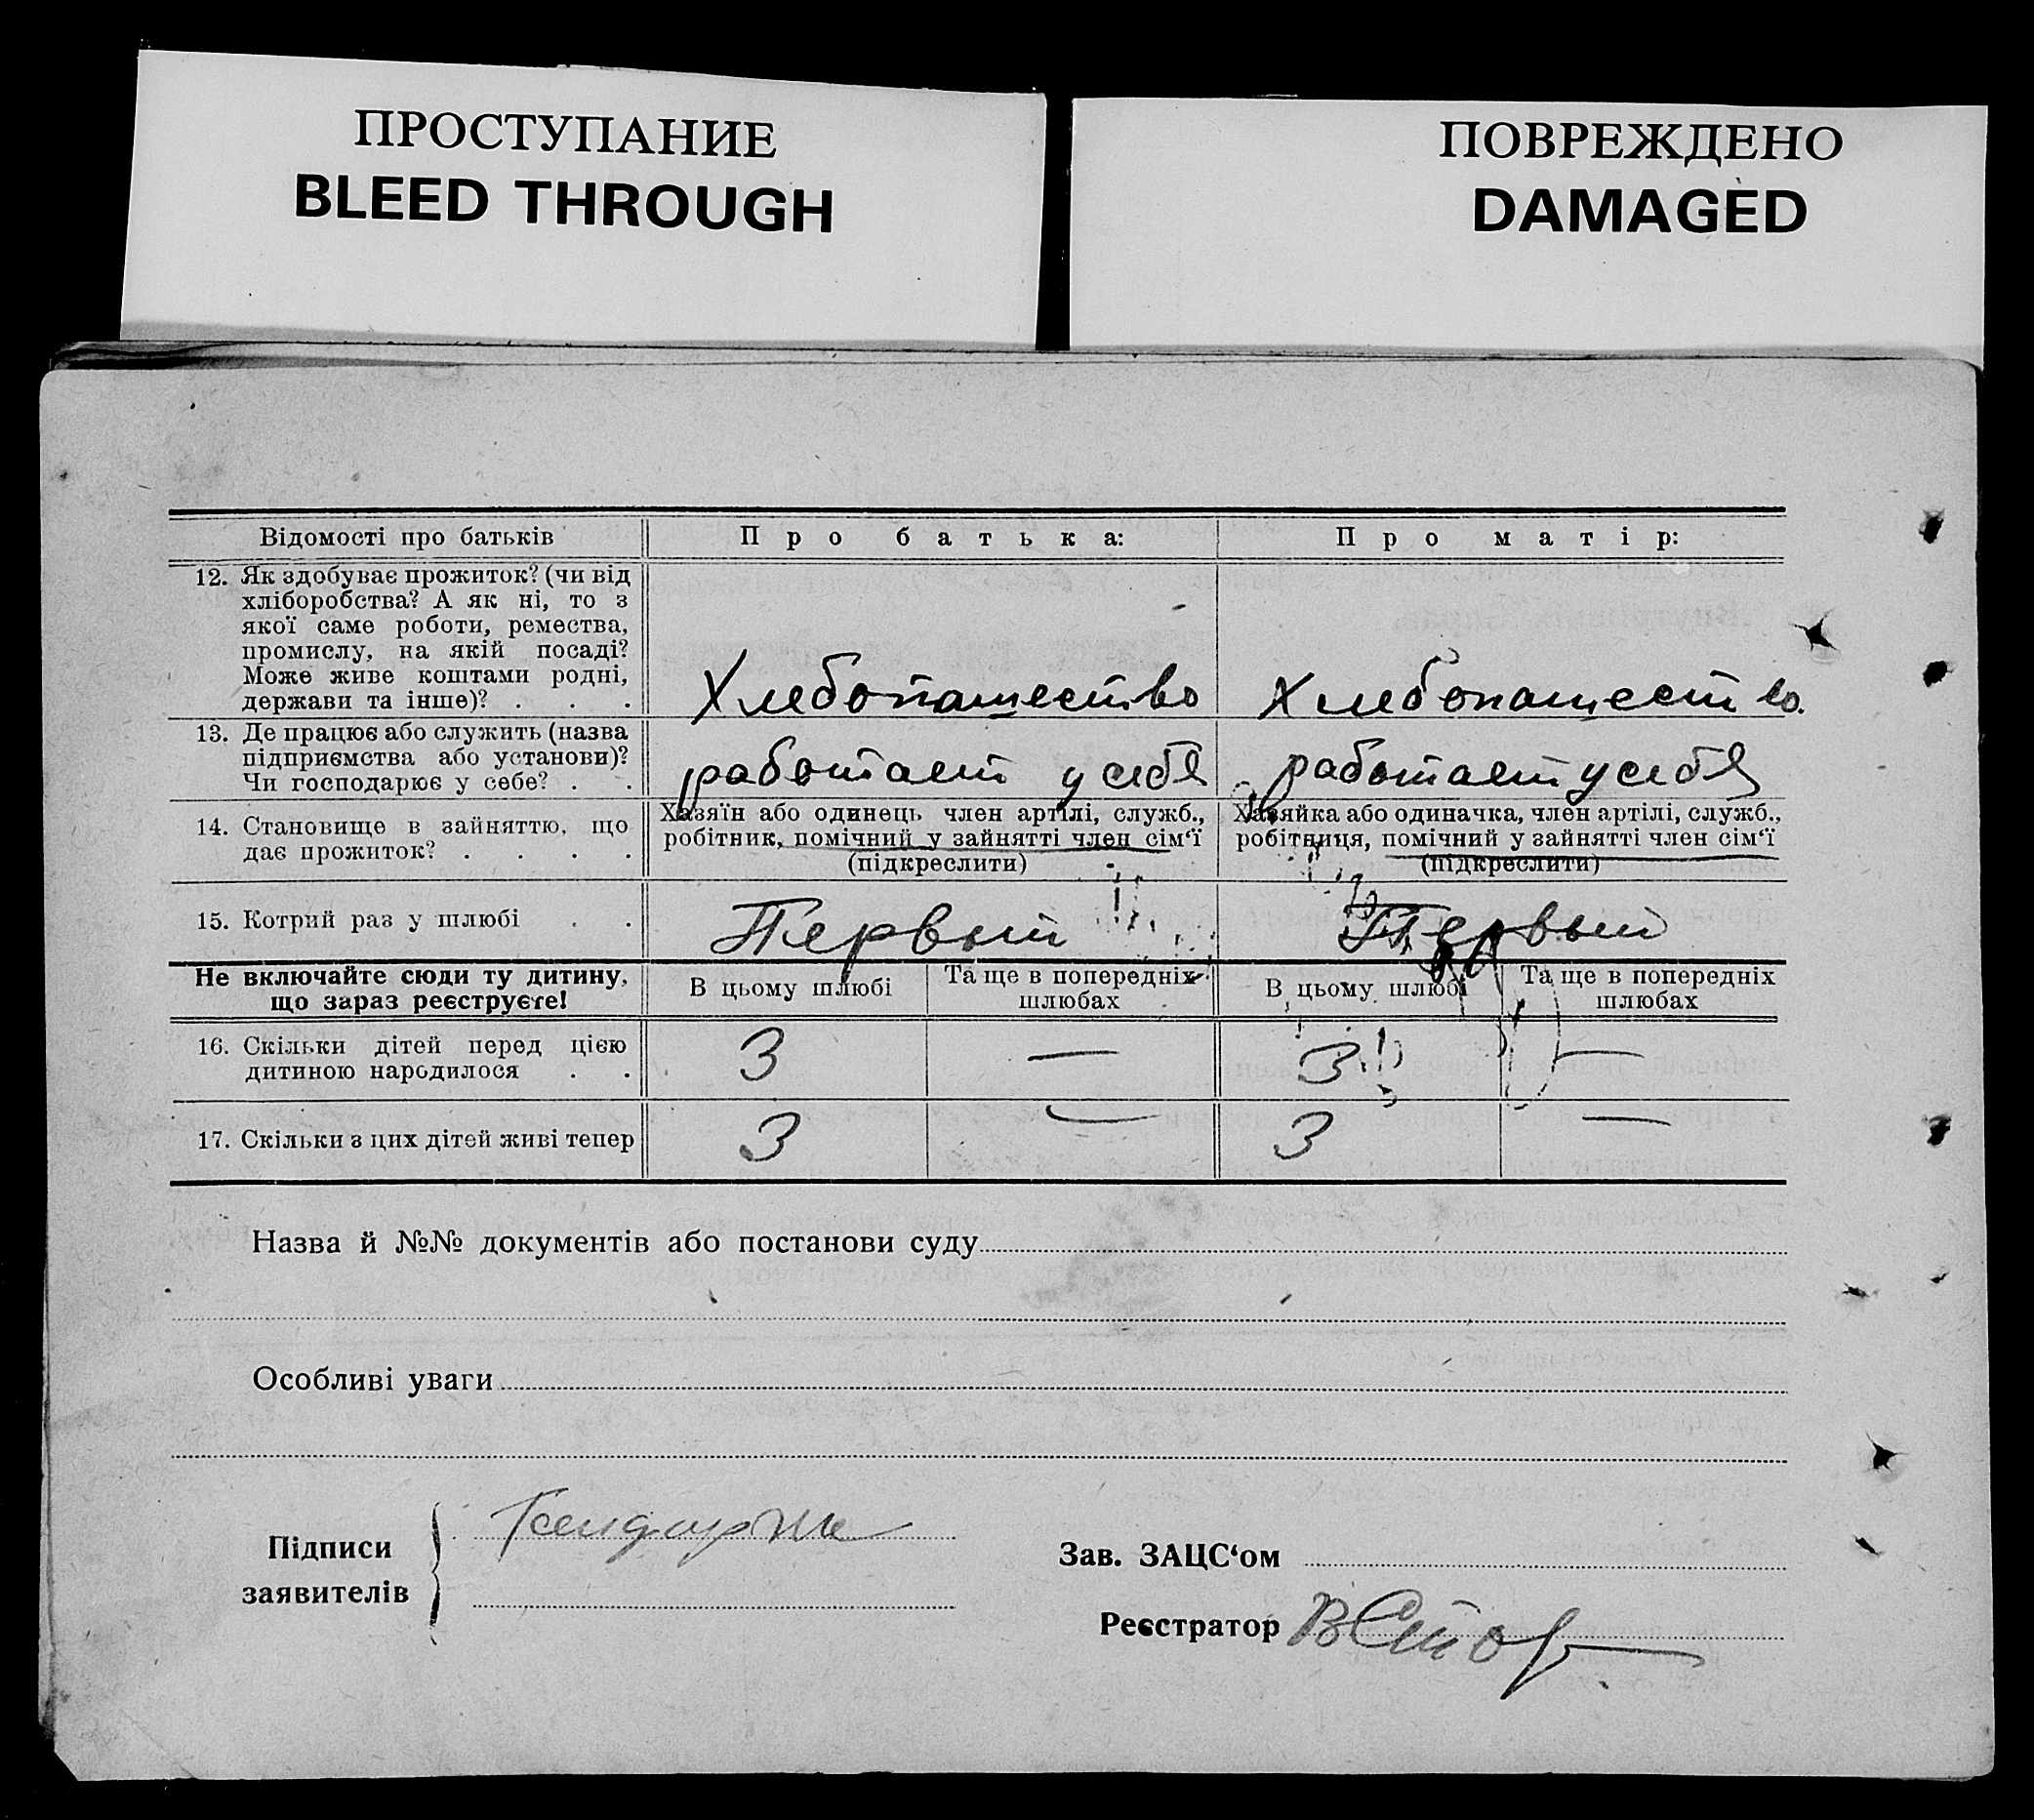 ПРОСТУПАНИЕ
BLEED THROUGH
ПОВРЕЖДЕНО
DAMAGED
Відомості про батьків
Про батька:
Про матір:
12. Як здобуває прожиток? (чи від
хліборобства? А як ні, то з
якої саме роботи, ремества,
промислу, на якій посаді?
Може живе коштами родні,
держави та інше)? . . .
Хлебопашество
Хлебопашество.
13. Де працює або служить (назва
підприємства або установи)?
Чи господарює у себе? . .
работает у себя
работает у себя
14. Становище в зайняттю, що
дає прожиток? . . . .
Хазяїн або одинець член артілі, служб.,
робітник, помічний у зайнятті член сім‘ї
(підкреслити)
Хазяйка або одиначка, член артілі, служб.,
робітниця, помічний у зайнятті член сім‘ї
(підкреслити)
15. Котрий раз у шлюбі . .
Первый
Первый
Не включайте сюди ту дитину,
що зараз реєструєте!
В цьому шлюбі
Та ще в попередніх
шлюбах
В цьому шлюбі
Та ще в попередніх
шлюбах
16. Скільки дітей перед цією
дитиною народилося . .
3
—
3
—
17. Скільки з цих дітей живі тепер
3
—
3
—
Назва й №№ документів або постанови суду
Особливі уваги
Підписи
заявителів
Зав. ЗАЦС‘ом
Реєстратор